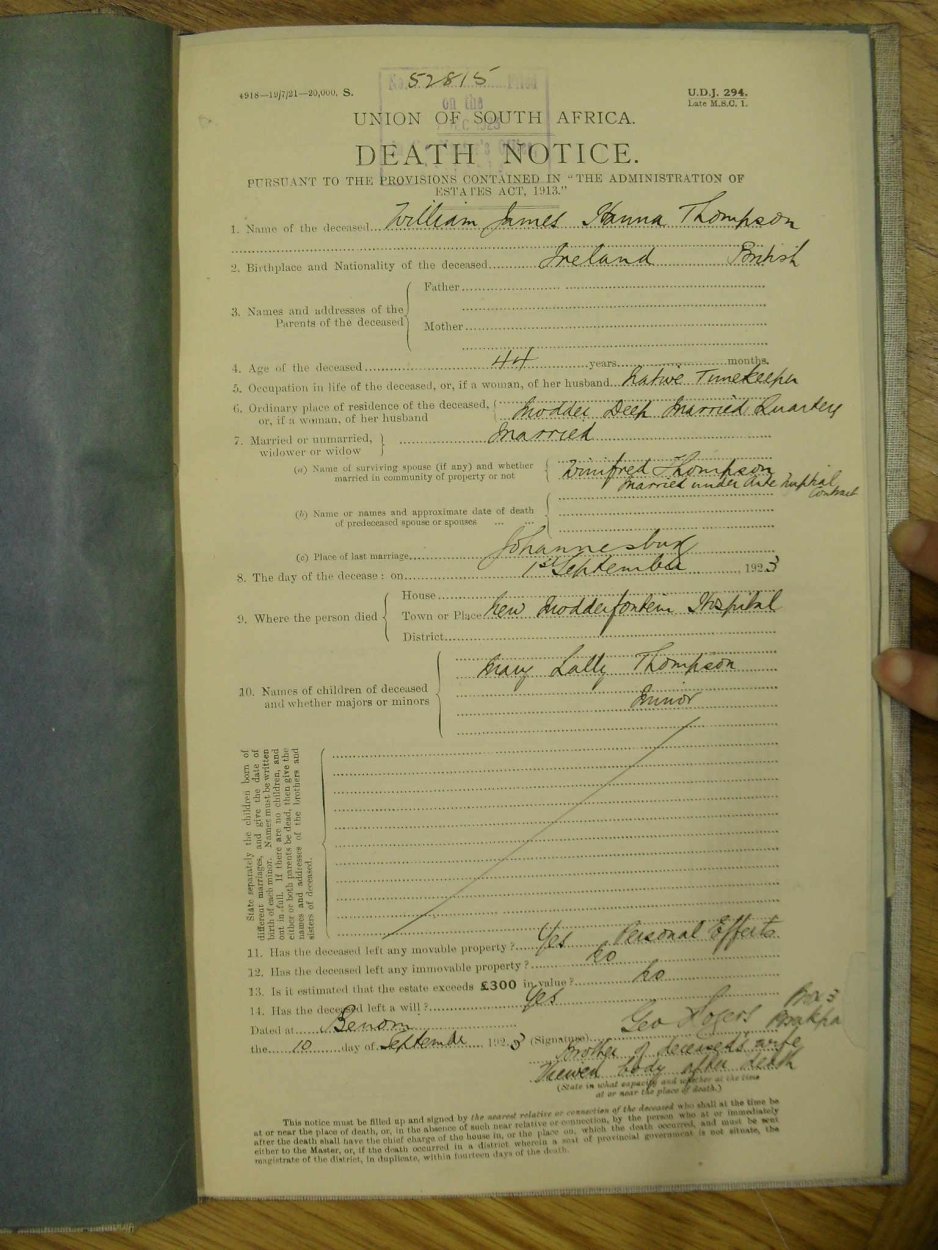 52815
No. Filed
4918—19/7/21—20,000. S.
U.D.J. 294.
Late M.S.C. 1.
on the
UNION OF SOUTH AFRICA.
1923
DEATH NOTICE.
PURSUANT TO THE PROVISIONS CONTAINED IN "THE ADMINISTRATION OF
ESTATES ACT, 1913."
1. Name of the deceased William James Hanna Thompson
2. Birthplace and Nationality of the deceased Ireland British
3. Names and addresses of the
Parents of the deceased
Father
Mother
4. Age of the deceased 44 years months.
5. Occupation in life of the deceased, or, if a woman, of her husband Native Timekeeper
6. Ordinary place of residence of the deceased,
or, if a woman, of her husband
Modder Deep Married Quarters
7. Married or unmarried,
widower or widow
Married
(a) Name of surviving spouse (if any) and whether
married in community of property or not
Winifred Thompson
Married under Ante Nuptial
contract
(b) Name or names and approximate date of death
of predeceased spouse or spouses ... ...
(c) Place of last marriage Johannesburg
8. The day of the decease: on 1st September 1923
9. Where the person died
House
Town or Place New Modderfontein Hospital
District
10. Names of children of deceased
and whether majors or minors
Mary Lally Thompson
Minor
State separately the children born of
different marriages, and give the date of
birth of each minor. Names must be written
out in full. If there are no children, and
either or both parents be dead, then give the
names and addresses of the brothers and
sisters of deceased.
11. Has the deceased left any movable property? Yes Personal Effects
12. Has the deceased left any immovable property? No
13. Is it estimated that the estate exceeds £300 in value? No
14. Has the deceased left a will? Yes
Dated at Benoni
the 10 day of September 1923
(Signature) Geo Box 3
Brakpan
Brother of deceased's wife
Viewed body after death
(State in what capacity and whether at the time
at or near the place of death.)
This notice must be filled up and signed by the nearest relative or connection of the deceased who shall at the time be
at or near the place of death, or, in the absence of such near relative or connection, by the person who at or immediately
after the death shall have the chief charge of the house in, or the place on, which the death occurred, and must be sent
either to the Master, or, if the death occurred in a district wherein a seat of provincial government is not situate, the
magistrate of the district, in duplicate, within fourteen days of the death.